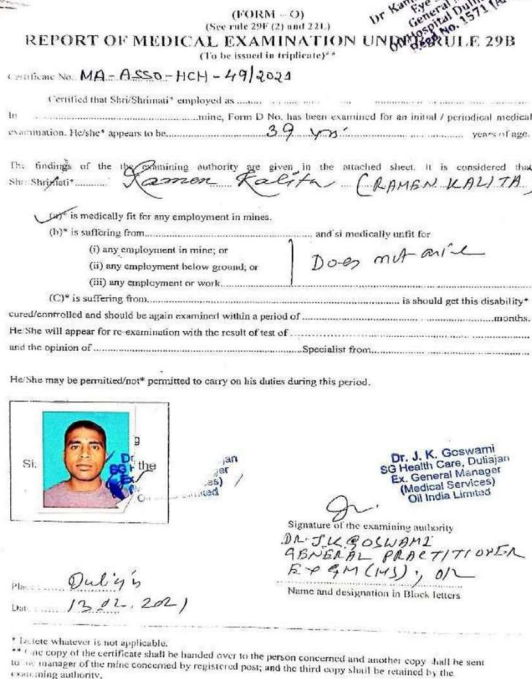 (FORM – O)
(See rule 29F (2) and 221.)
REPORT OF MEDICAL EXAMINATION UNDER RULE 29B
(To be issued in triplicate)**
Certificate No. MA-ASSO-HCH-49/2021
Certified that Shri/Shrimati* employed as
In ... mine, Form D No. has been examined for an initial / periodical medical
examination. He/she* appears to be 39 yrs. years of age.
The findings of the the examining authority are given in the attached sheet. It is considered that
Shri Shrimati* Ramen Kalita (RAMEN KALITA)
(a)* is medically fit for any employment in mines.
(b)* is suffering from ... and si medically unfit for
(i) any employment in mine; or
(ii) any employment below ground; or
(iii) any employment or work
Does not arise
(C)* is suffering from ... is should get this disability*
cured/controlled and should be again examined within a period of ... months.
He/She will appear for re-examination with the result of test of
and the opinion of ... Specialist from
He/She may be permitted/not* permitted to carry on his duties during this period.
Dr. J. K. Goswami
SG Health Care, Duliajan
Ex. General Manager
(Medical Services)
Oil India Limited
Signature of the examining authority
DR. J.K GOSWAMI
GENERAL PRACTITIONER
EX GM (MS), OIL
Name and designation in Block letters
Date 13.02.2021
* Delete whatever is not applicable.
** One copy of the certificate shall be handed over to the person concerned and another copy shall be sent
to the manager of the mine concerned by registered post; and the third copy shall be retained by the
examining authority.